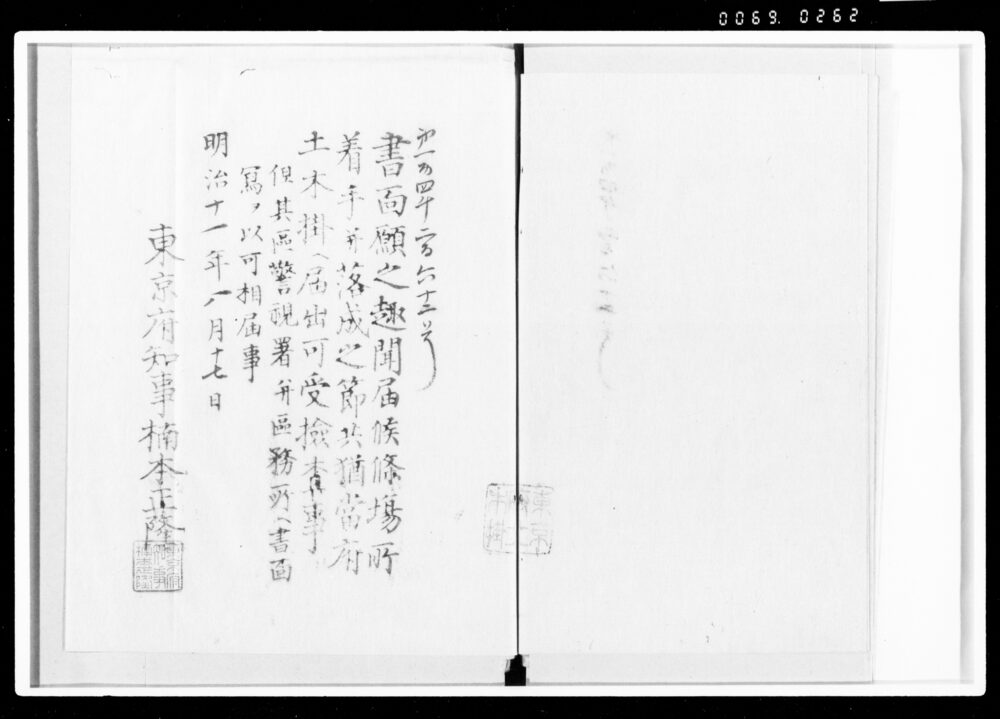 0069. 0262
第一万四千二百六十二号
書面願之趣聞届候條場所
着手并落成之節共猶當府
土木掛ヘ届出可受撿査事
但其區警視署并區務所ヘ書面
寫ヲ以可相届事
明治十一年八月十七日
東京府知事楠本正隆
東京府土木掛